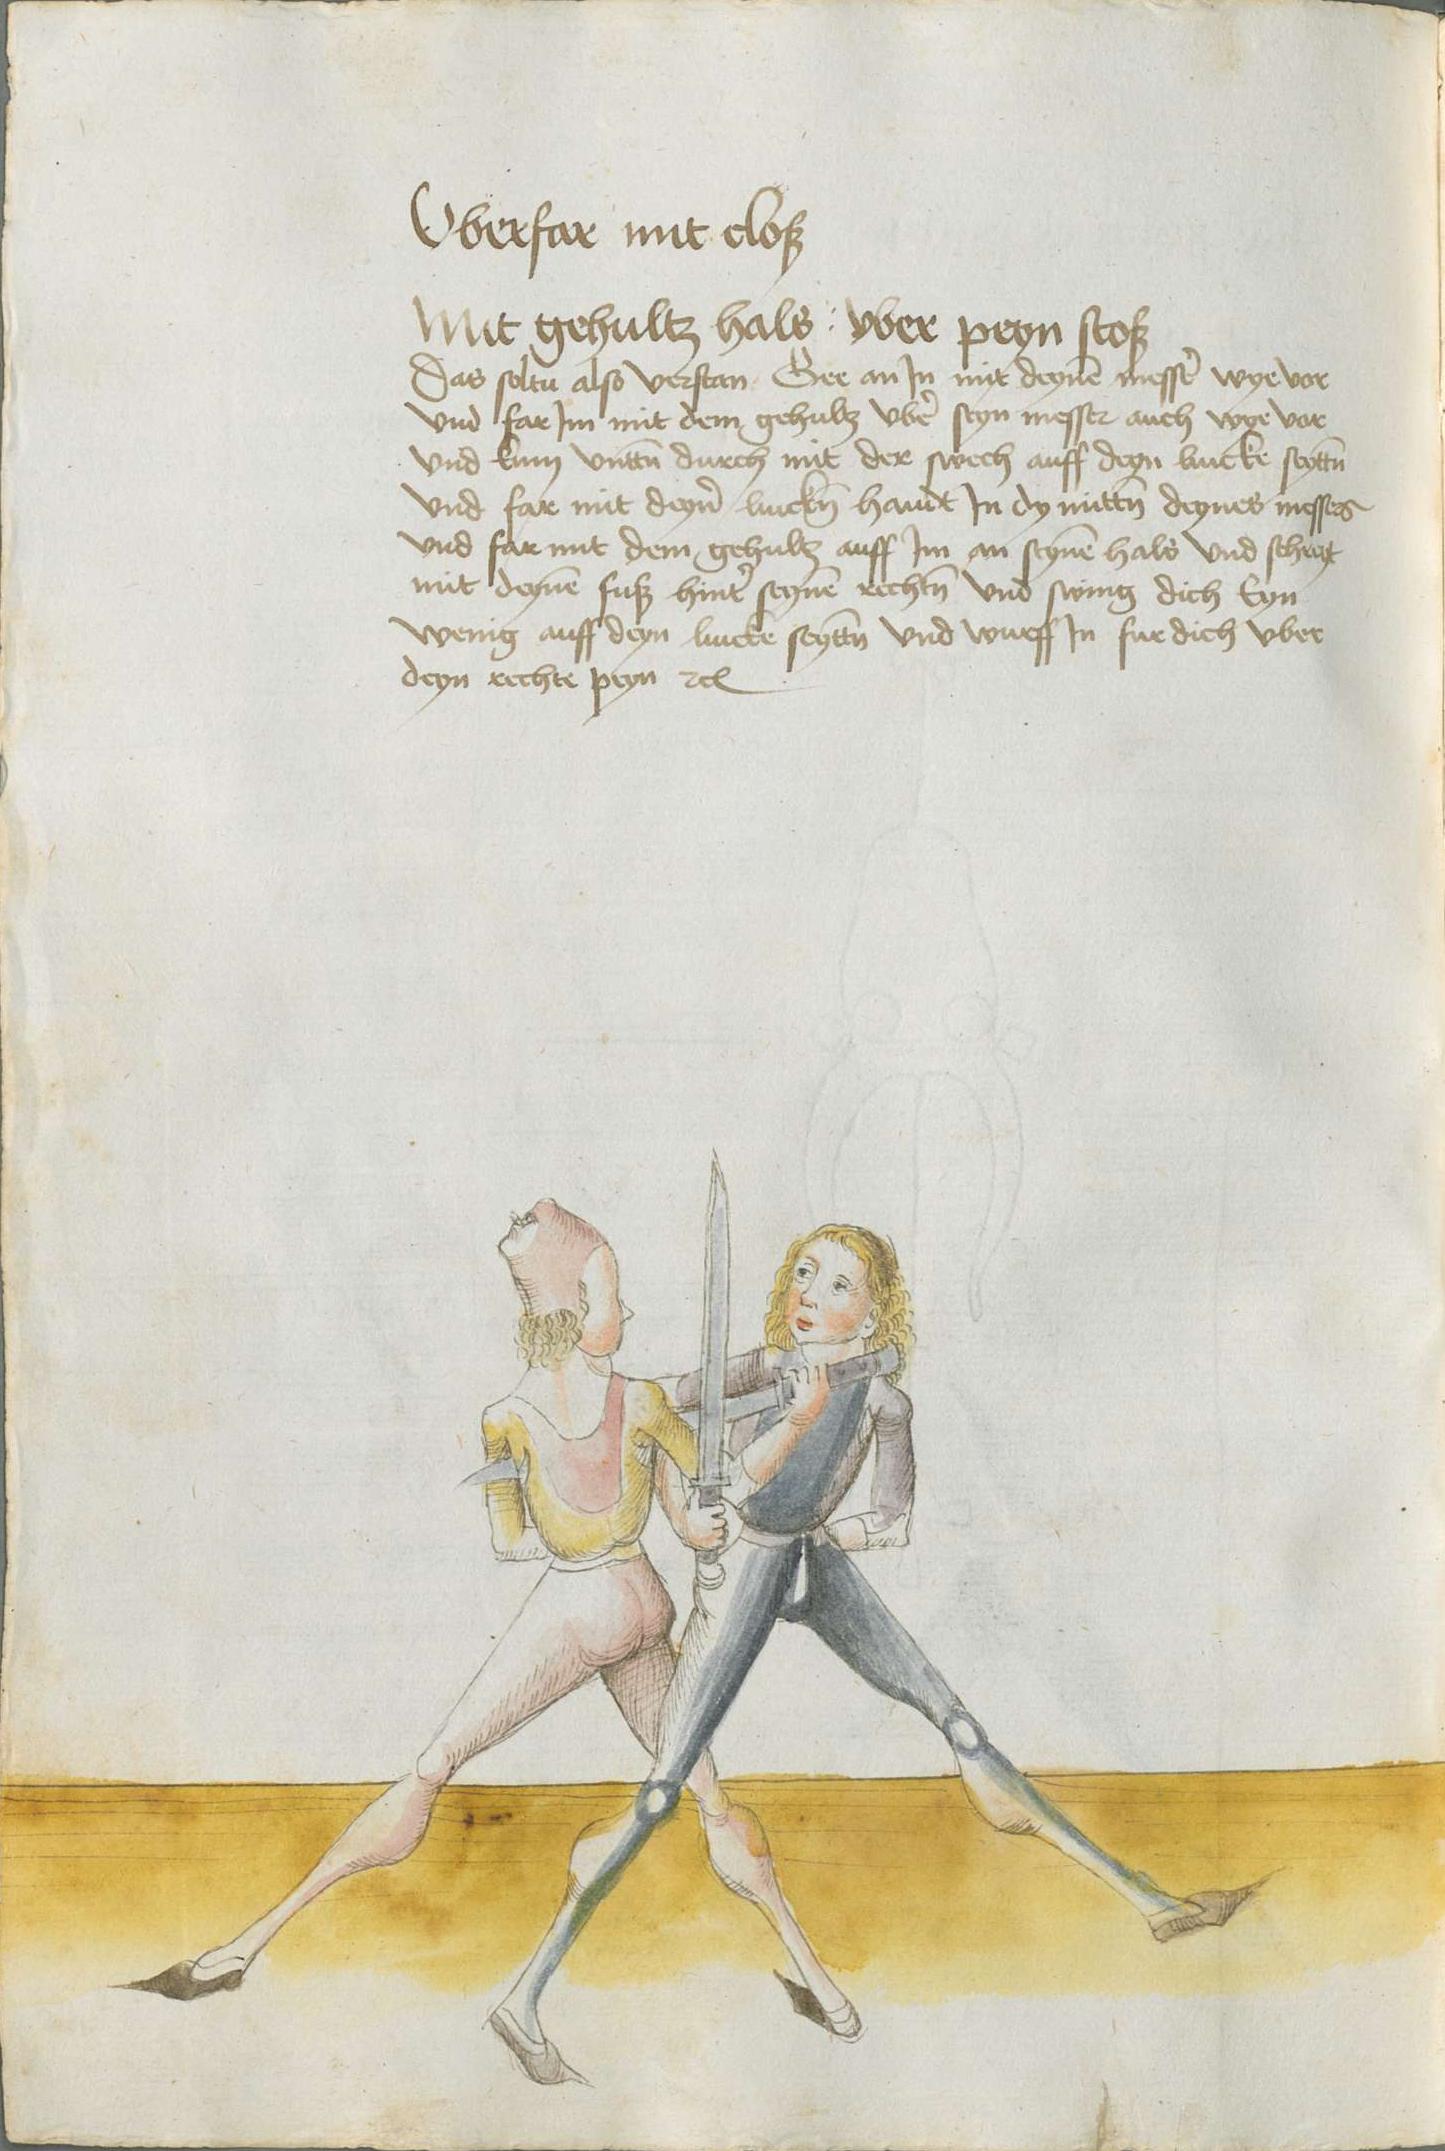 Vberfar mit cloß
Mit gehultz hals : vber peyn stoß
Das soltu also verstan Gee an In mit deynē messer̄ wye vor
vnd far Im mit dem gehultz vber̄ seyn messer auch wye vor
vnd kum vnttn̄ durch mit der swech auff deyn lincke seyttn̄
vnd far mit deyner̄ linckn̄ handt In dy mittn̄ deynes messers
vnd far mit dem gehultz auff Im an seynē hals vnd schreyt
mit deynē fuß hinter̄ seynē rechtn̄ vnd swing dich Eyn
wenig auff deyn lincke seyttn̄ vnd wurff In fur dich vber
deyn rechte peyn